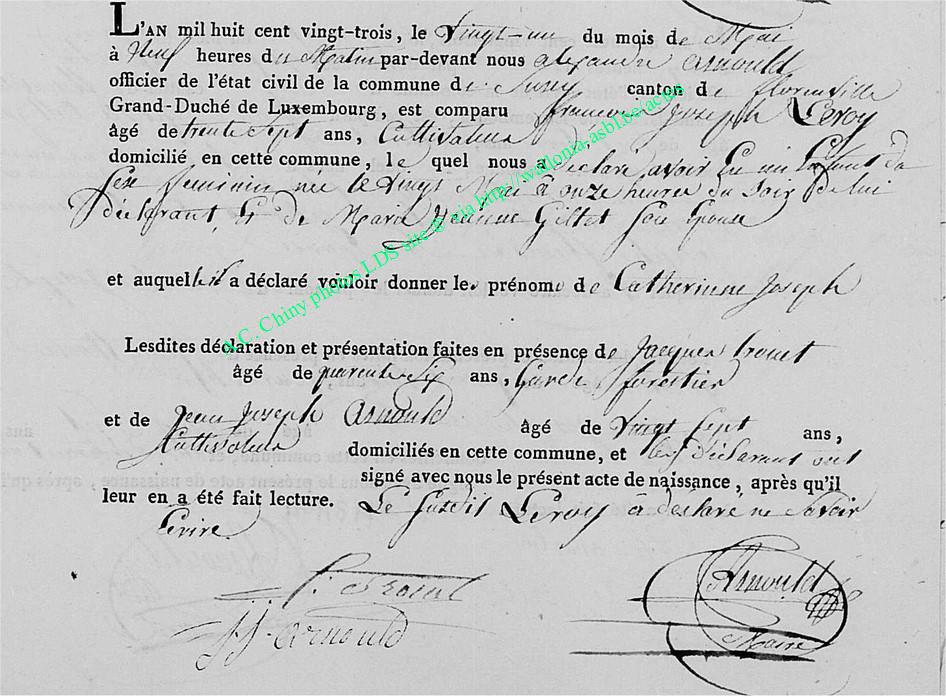 L'AN mil huit cent vingt-trois, le Vingt-un du mois de Mai
à Neuf heures du Matin par-devant nous alexandre Arnould
officier de l'état civil de la commune de Suxy canton de florenville
Grand-Duché de Luxembourg, est comparu françois Joseph Leroy
âgé de trente Sept ans, Cultivateur
domicilié en cette commune, le quel nous a Déclaré avoir Eu un Enfant du
Sexe feminin née le Vingt Mai à onze heures du Soir de lui
déclarant, & de Marie Giltet Son Epouse
et auquel il a déclaré vouloir donner les prénoms de Catherinne Joseph
Lesdites déclaration et présentation faites en présence de Jacques
âgé de quarente-Six ans, Garde forestier
et de Jean Joseph Arnould âgé de Vingt Sept ans,
Cultivateur domiciliés en cette commune, et les Déclarant ont
signé avec nous le présent acte de naissance, après qu'il
leur en a été fait lecture. Le Susdit Leroy à déclaré ne Savoir
Ecrire
JJ. Arnould
Arnould
Maire
A.C. Chiny photos LDS site @ via http://wallonia.asbl.be/actus